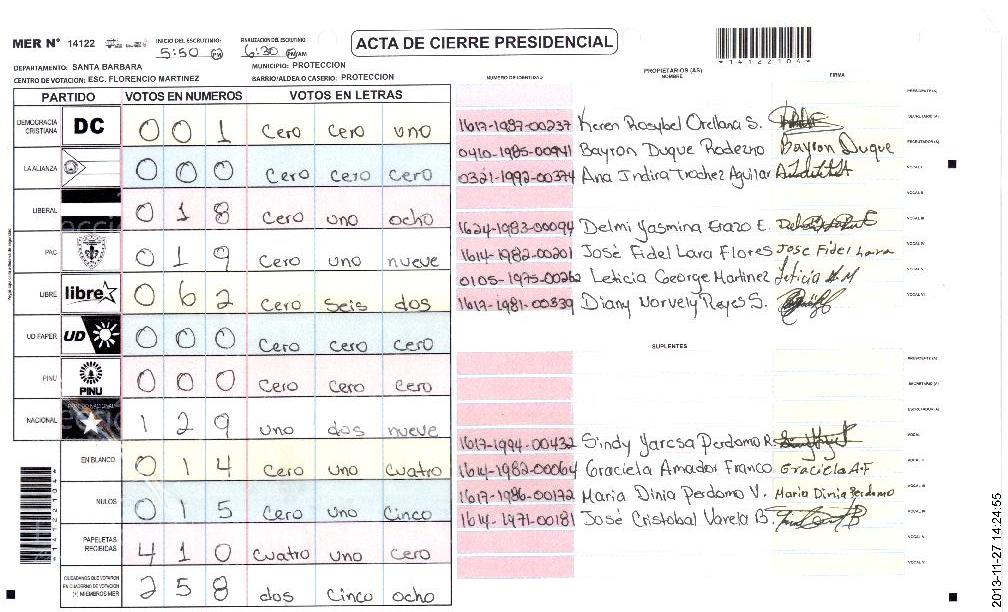 MER N° 14122
INICIO DEL ESCRUTINIO: 5:50 PM
FINALIZACION DEL ESCRUTINIO: 6:30 PM/AM
ACTA DE CIERRE PRESIDENCIAL
*14122104*
DEPARTAMENTO: SANTA BARBARA
MUNICIPIO: PROTECCION
CENTRO DE VOTACION: ESC. FLORENCIO MARTINEZ
BARRIO/ALDEA O CASERIO: PROTECCION
PARTIDO VOTOS EN NUMEROS VOTOS EN LETRAS
DEMOCRACIA CRISTIANA DC 0 0 1 Cero Cero uno
LA ALIANZA 0 0 0 Cero Cero Cero
LIBERAL 0 1 8 Cero uno ocho
PAC 0 1 9 Cero uno nueve
LIBRE libre 0 6 2 Cero Seis dos
UD FAPER UD 0 0 0 Cero Cero Cero
PINU PINU 0 0 0 Cero Cero Cero
NACIONAL 1 2 9 uno dos nueve
EN BLANCO 0 1 4 Cero uno Cuatro
NULOS 0 1 5 Cero uno Cinco
PAPELETAS RECIBIDAS 4 1 0 Cuatro uno Cero
CIUDADANOS QUE VOTARON
EN CUADERNO DE VOTACION
(+) MIEMBROS MER 2 5 8 dos Cinco ocho
PROPIETARIOS (AS)
NUMERO DE IDENTIDAD NOMBRE FIRMA
PRESIDENTE (A)
1617-1987-00237 Keren Rosybel Orellana S. SECRETARIO (A)
0410-1985-00941 Bayron Duque Rodezno Bayron Duque ESCRUTADOR (A)
0321-1992-00374 Ana Indira Trochez Aguilar VOCAL I
VOCAL II
1624-1983-00094 Delmi Yasmina Erazo E. VOCAL III
1614-1982-00201 José Fidel Lara Flores Jose Fidel Lara VOCAL IV
0105-1975-00262 Leticia George Martinez Leticia G. M VOCAL V
1617-1981-00339 Diany Norvely Reyes S. VOCAL VI
SUPLENTES
PRESIDENTE (A)
SECRETARIO (A)
ESCRUTADOR (A)
1617-1994-00432 Sindy Yaresa Perdomo R. VOCAL I
1614-1982-00064 Graciela Amador Franco Graciela A.F VOCAL II
1617-1986-00172 Maria Dinia Perdomo V. Maria Dinia Perdomo VOCAL III
1614-1971-00181 José Cristobal Varela B. VOCAL IV
VOCAL V
VOCAL VI
2013-11-27 14:24:55